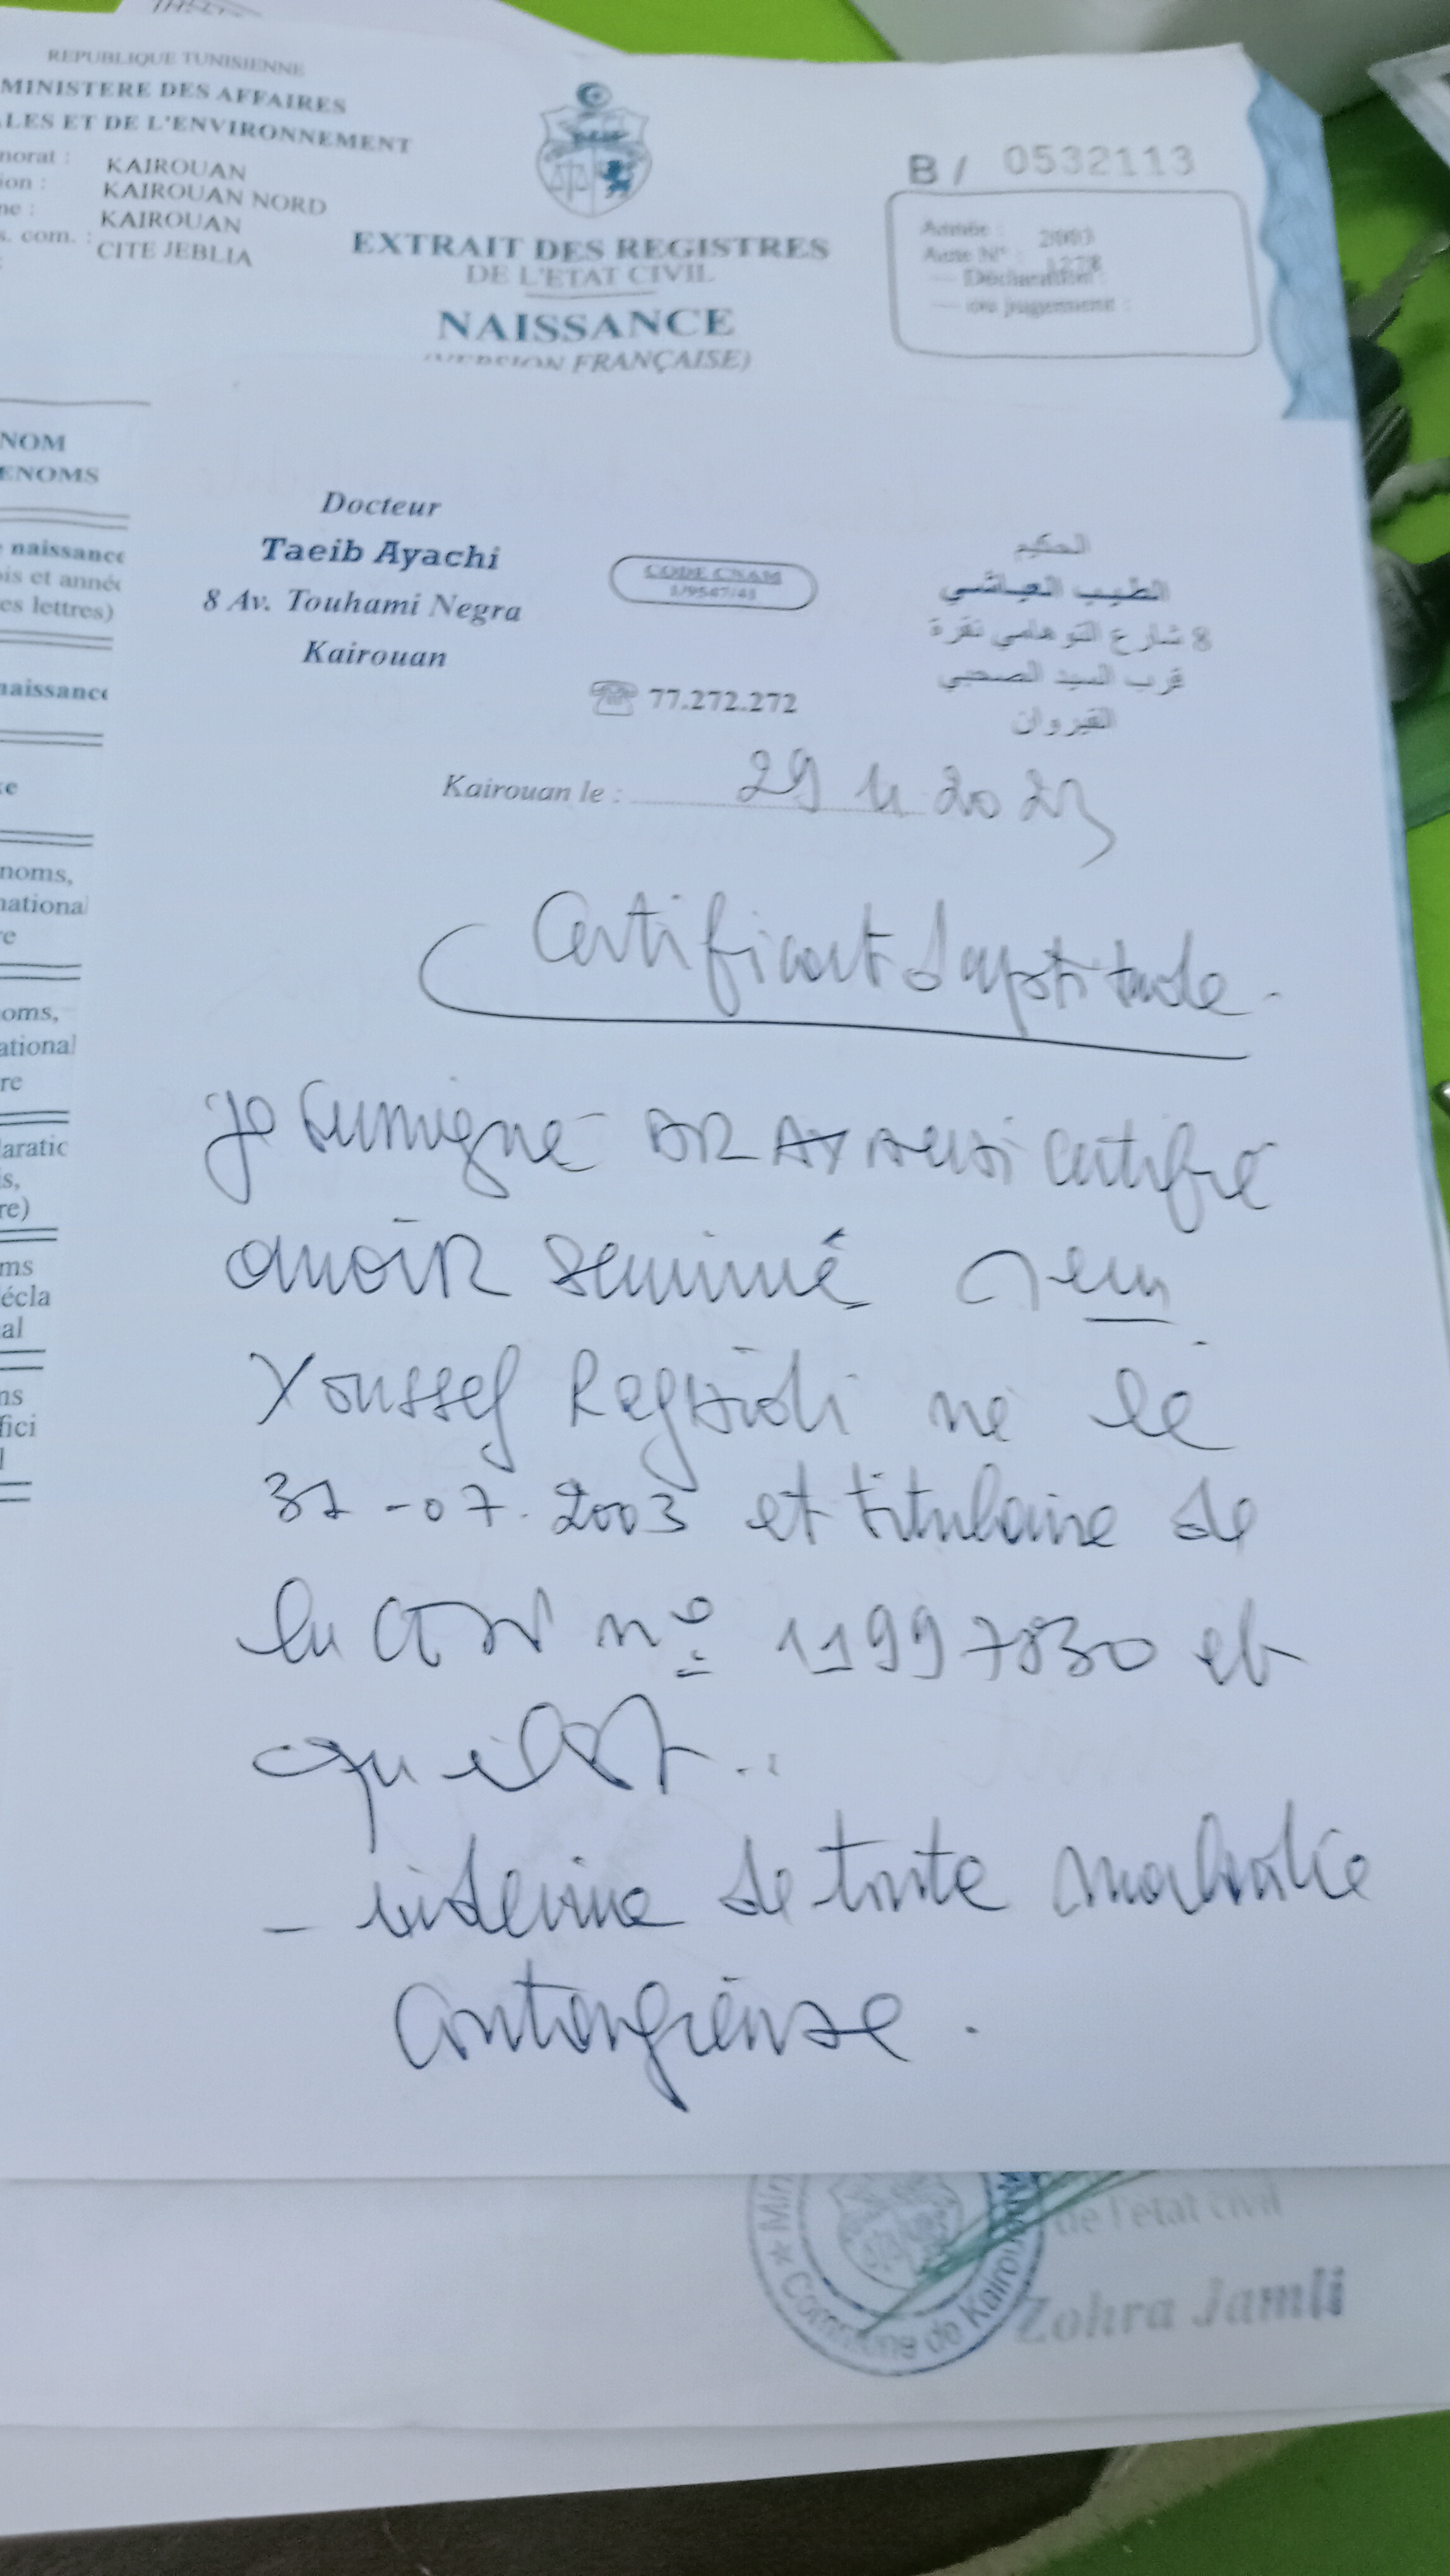 REPUBLIQUE TUNISIENNE
MINISTERE DES AFFAIRES
LES ET DE L'ENVIRONNEMENT
norat : KAIROUAN
ion : KAIROUAN NORD
ne : KAIROUAN
s. com. : CITE JEBLIA
EXTRAIT DES REGISTRES
DE L'ETAT CIVIL
NAISSANCE
(VERSION FRANÇAISE)
B/ 0532113
Année : 2003
Acte N° : 1278
— Déclaration :
— ou jugement :
NOM
ENOMS
naissance
is et anné
es lettres)
naissance
xe
noms,
national
re
oms,
ational
re
aratic
s,
re)
ms
écla
al
ns
fici
l
Docteur
Taeib Ayachi
8 Av. Touhami Negra
Kairouan
CODE CNAM
1/9547/41
الحكيم
الطيب العياشي
8 شارع التوهامي نقرة
قرب السيد الصحبي
القيروان
77.272.272
Kairouan le : 29 11 2023
Certificat d'aptitude.
Je soussigné DR AYACHI certifie
avoir examiné
Youssef Reguidi né le
31-07.2003 et titulaire de
la CIN n° 11997830 et
qu'il est :
- indemne de toute maladie
contagieuse.
Min
Commune de Kairouan
de l'état civil
Zohra Jamli